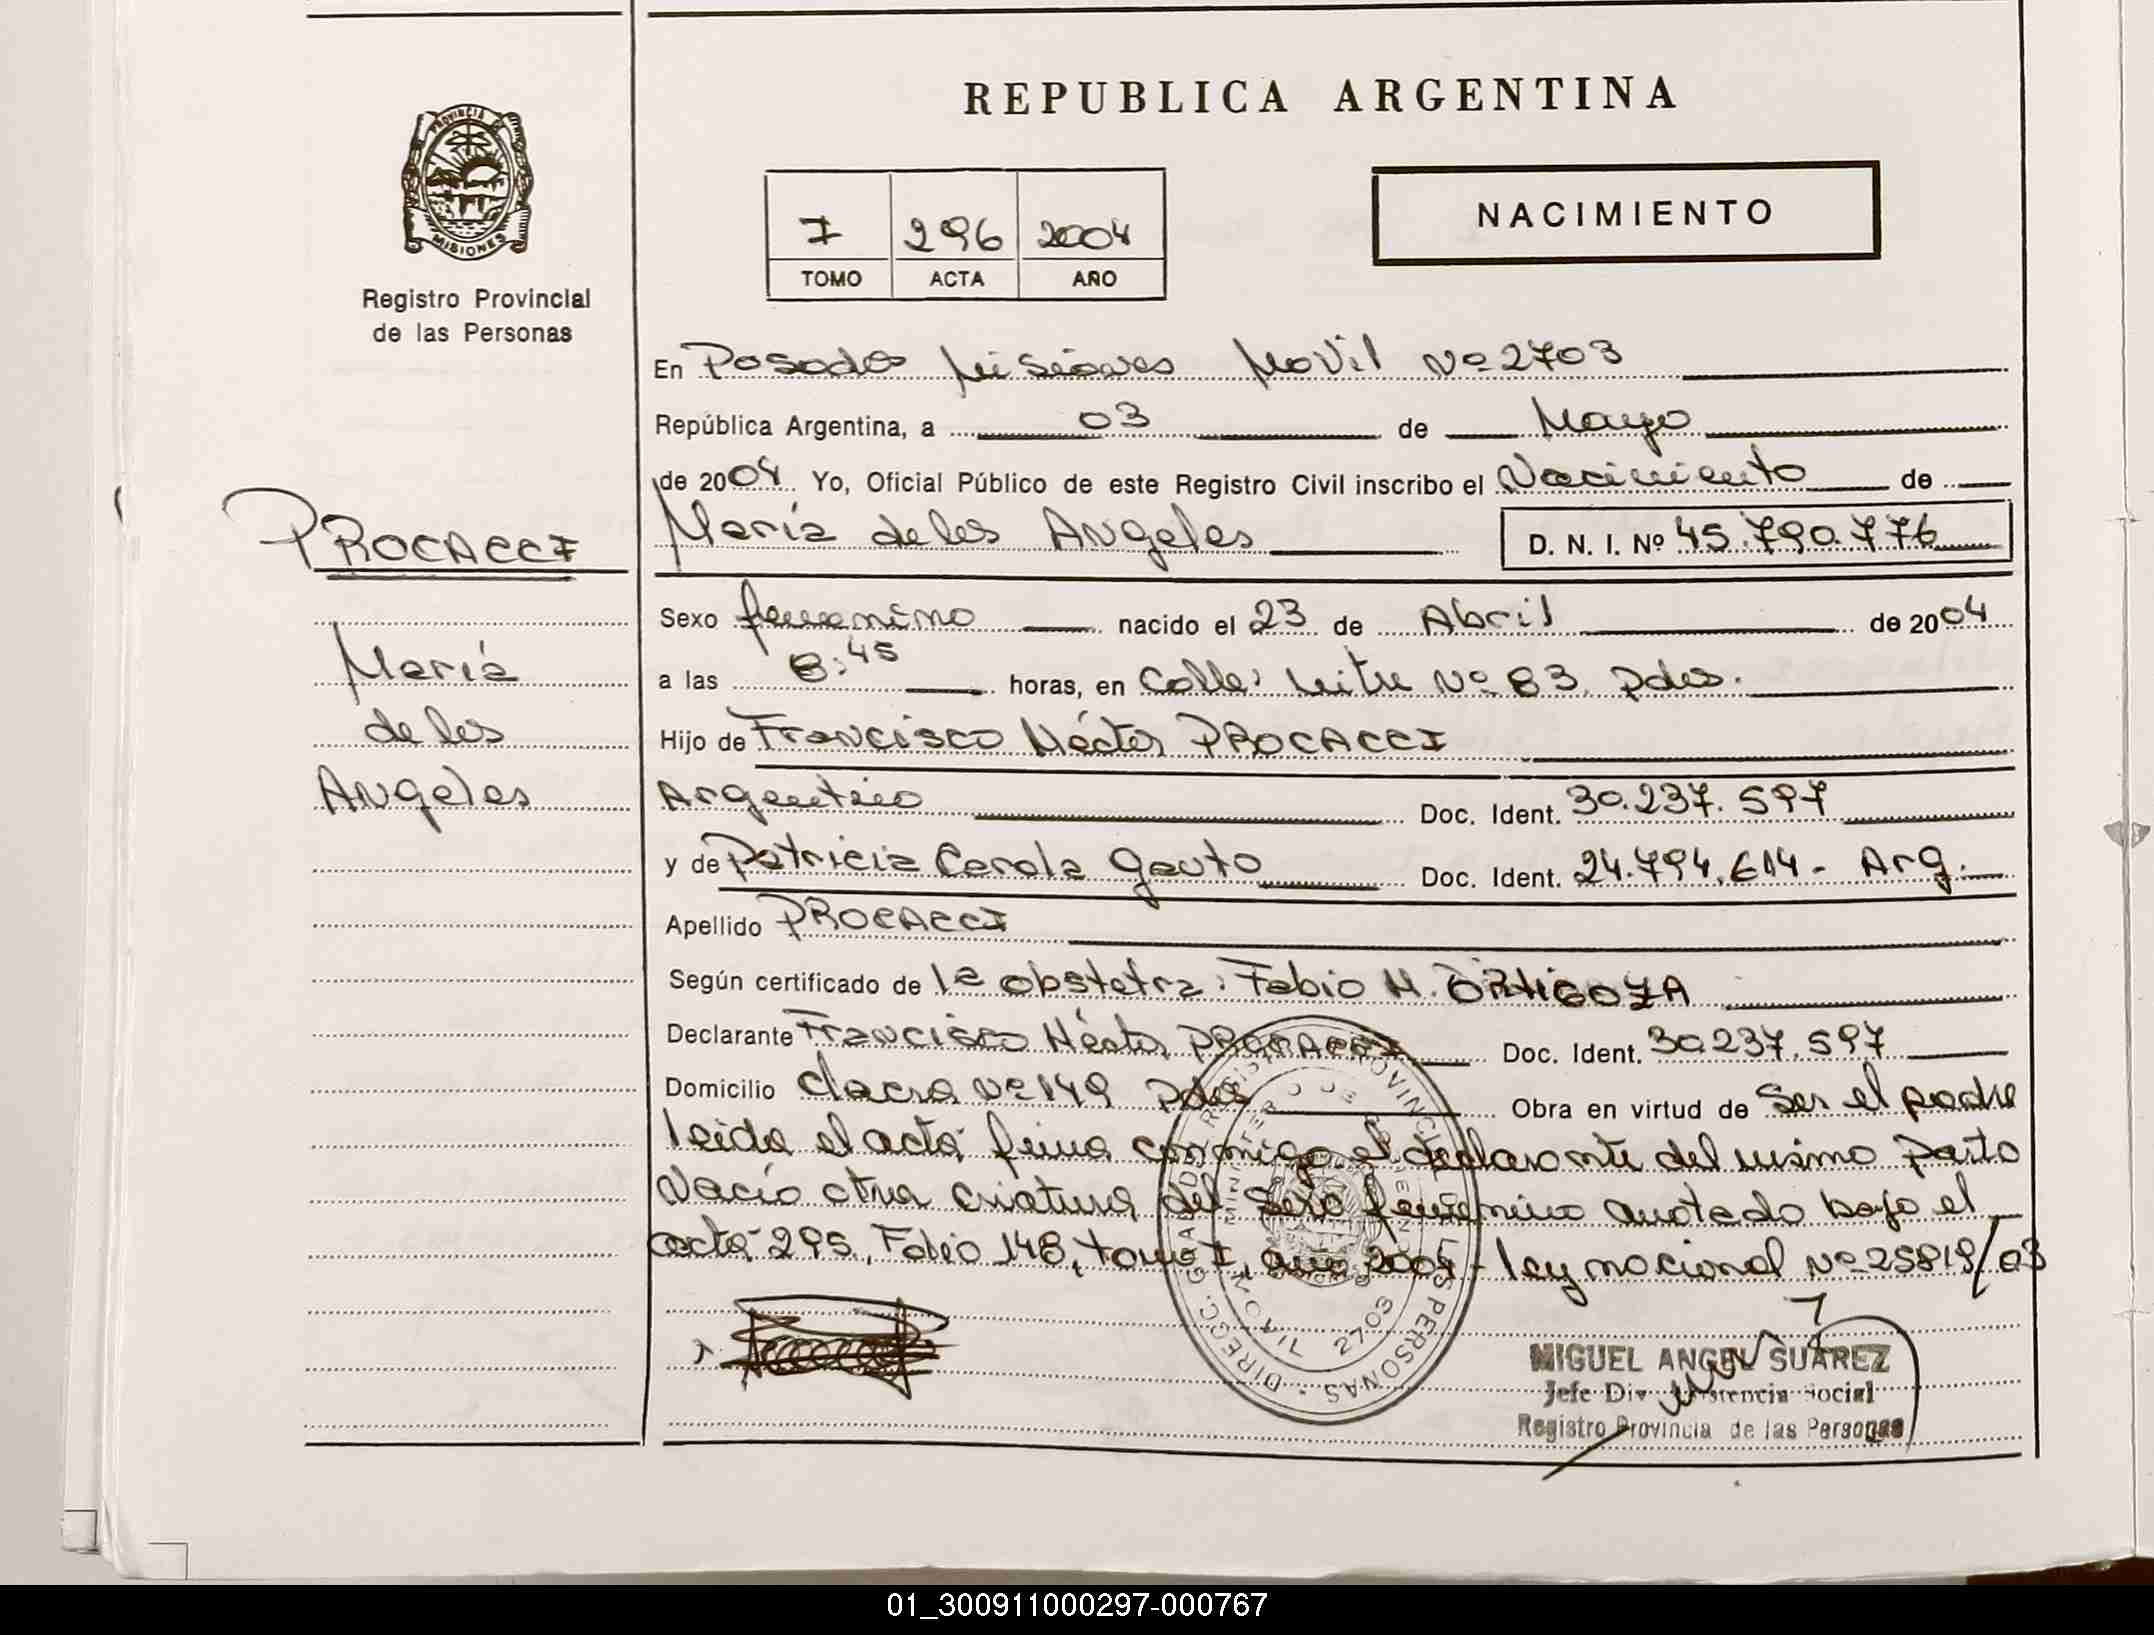 REPUBLICA ARGENTINA
PROVINCIA DE
MISIONES
Registro Provincial
de las Personas
I 296 2004
TOMO ACTA AÑO
NACIMIENTO
En Posadas Misiones Movil Nº 2703
República Argentina, a 03 de Mayo
de 2004 Yo, Oficial Público de este Registro Civil inscribo el Nacimiento de
María de los Angeles D. N. I. Nº 45.790.776
PROCACCI
María
de los
Angeles
Sexo femenino nacido el 23 de Abril de 2004
a las 8:45 horas, en Calle: Mitre Nº 83 Pdas.
Hijo de Francisco Héctor PROCACCI
Argentino Doc. Ident. 30.237.597
y de Patricia Carola Gauto Doc. Ident. 24.794.614 - Arg.
Apellido PROCACCI
Según certificado de la obstetra: Fabio H. ORTIGOZA
Declarante Francisco Héctor PROCACCI Doc. Ident. 30.237.597
Domicilio Chacra Nº 149 Pdas Obra en virtud de Ser el padre
leida el acta firma conmigo el declarante del mismo parto
Nació otra criatura del sexo femenino anotado bajo el
acta 295, Folio 148, tomo I, año 2004 - ley nacional Nº 25819/03
DIRECC. GRAL. DEL REGISTRO PROVINCIAL DE LAS PERSONAS
MINISTERIO DE GOBIERNO
MOVIL 2703
MIGUEL ANGEL SUAREZ
Jefe Div. Asistencia Social
Registro Provincia de las Personas
01_300911000297-000767